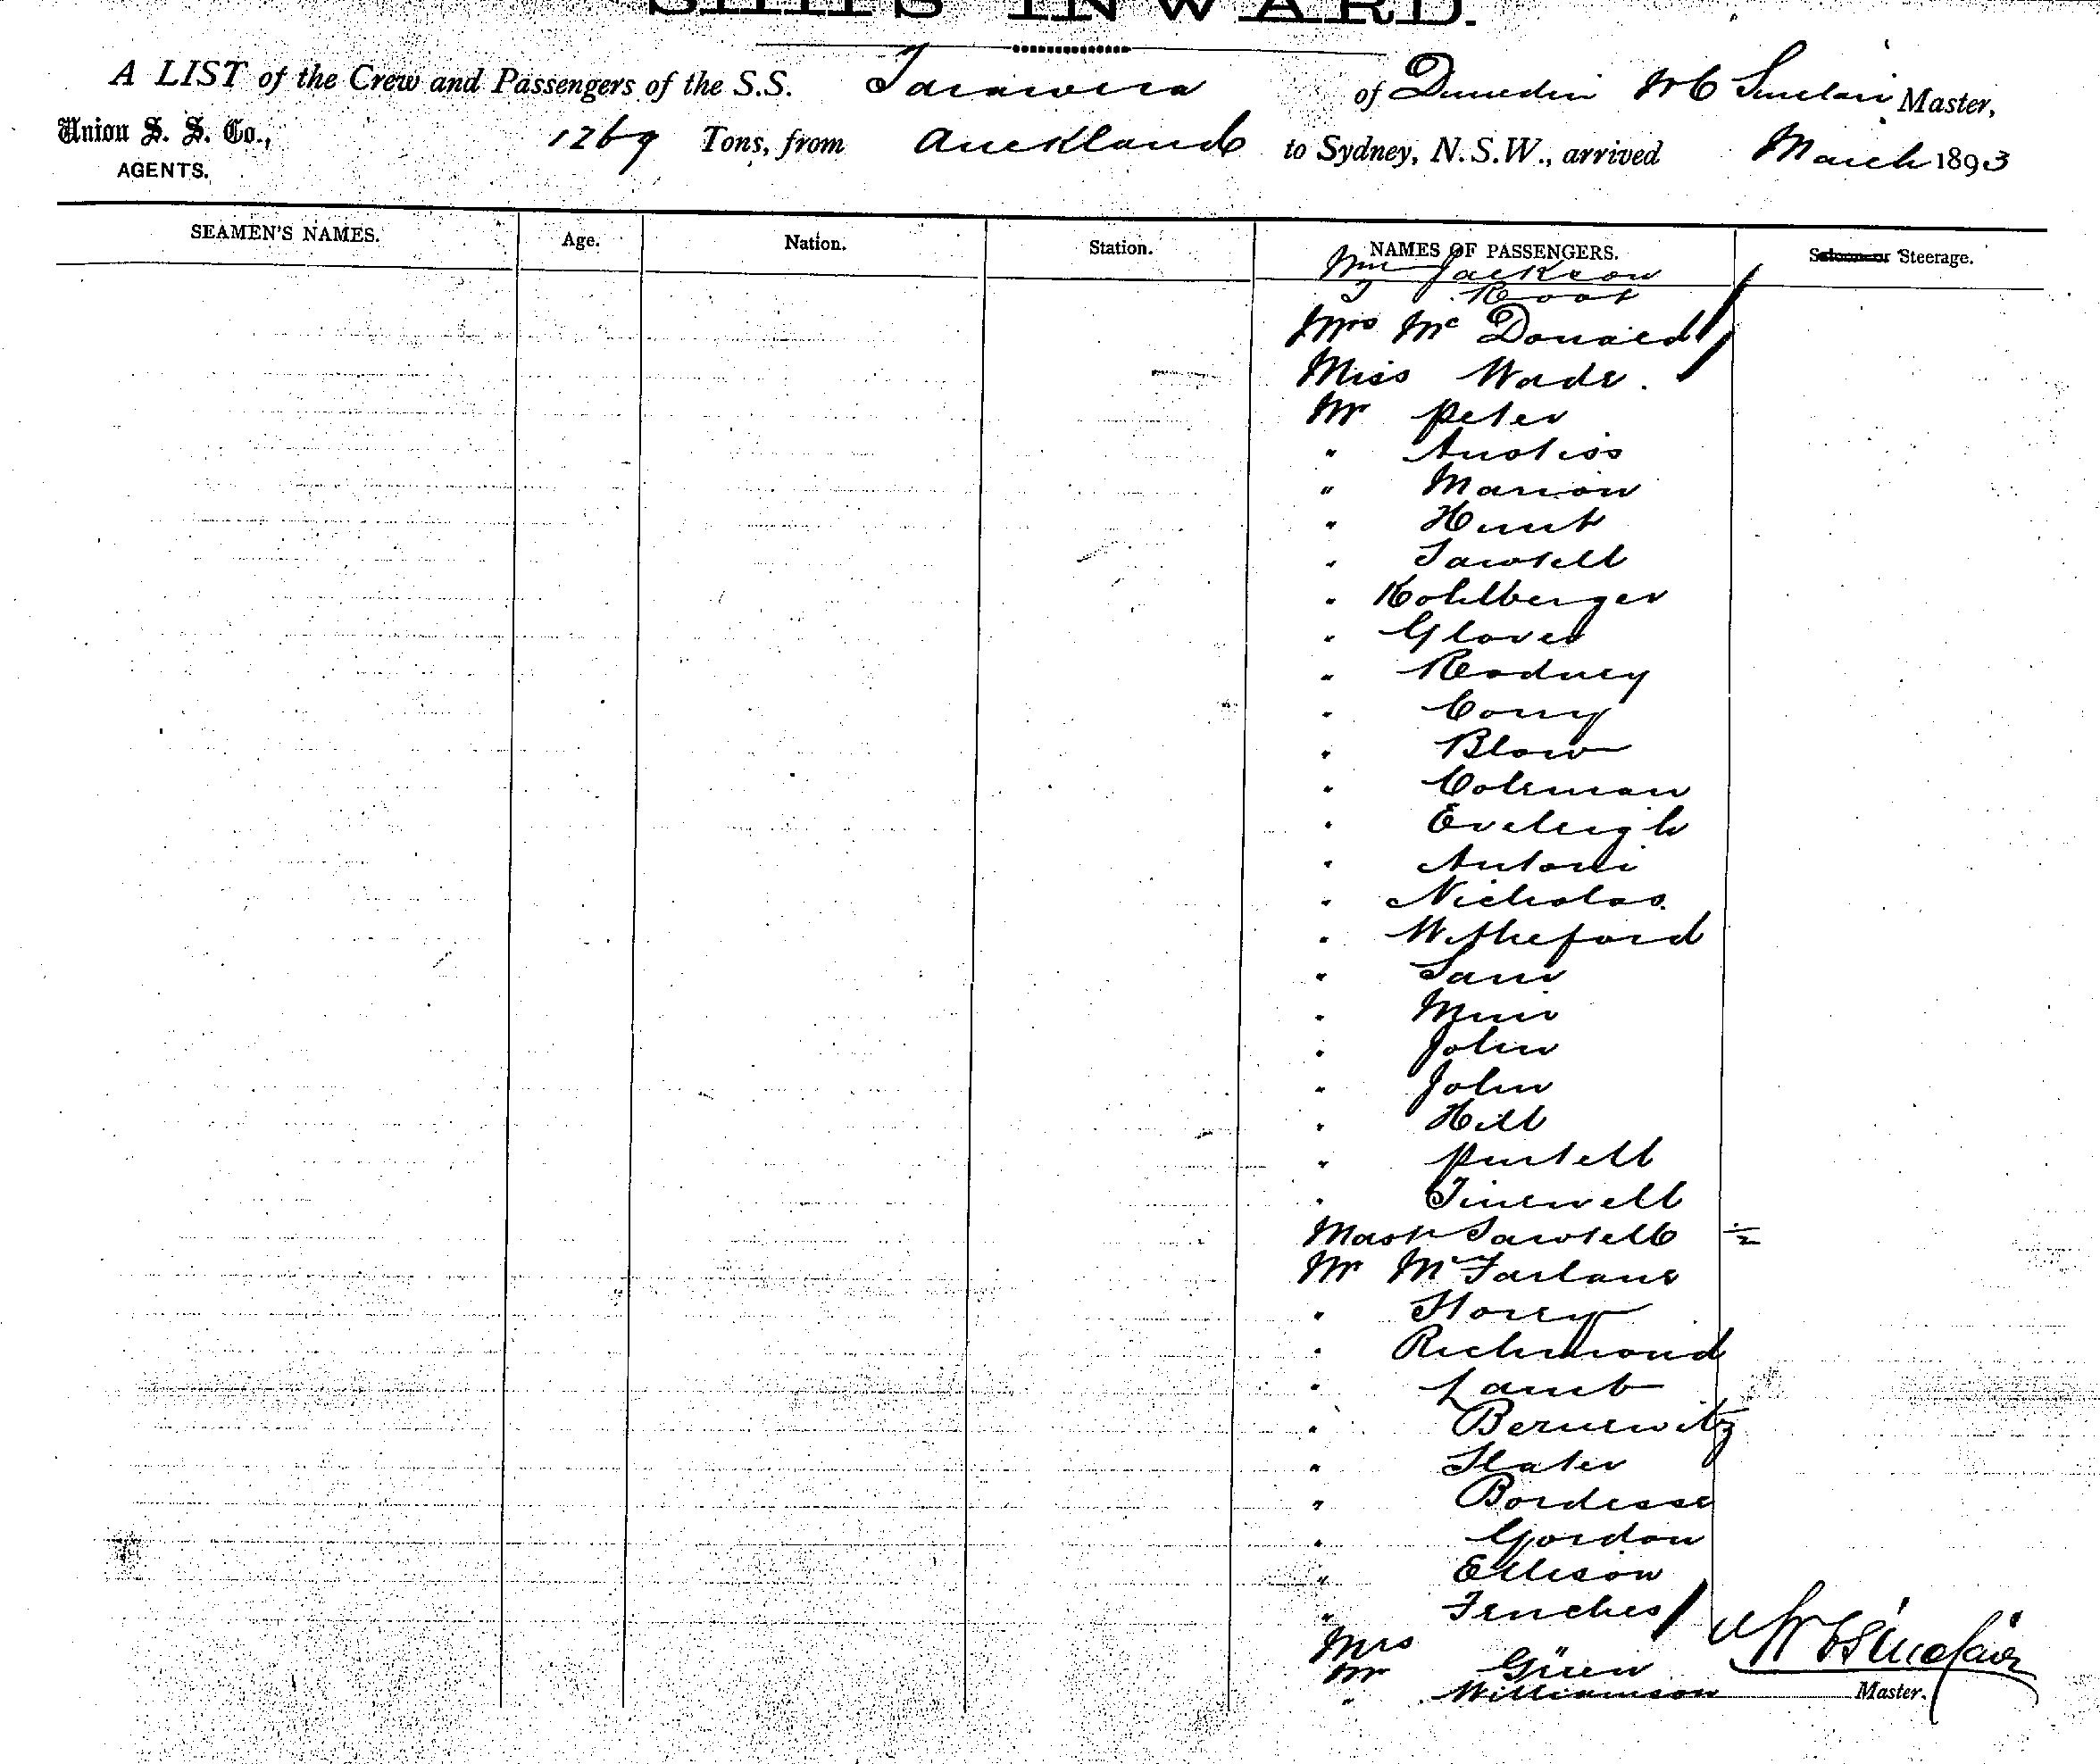 SHIPS INWARD.
A LIST of the Crew and Passengers of the S.S. Tarawera of Dunedin W C Sinclair Master,
Union S. S. Co., AGENTS. 1269 Tons, from Auckland to Sydney, N.S.W., arrived March 1893
SEAMEN'S NAMES. Age. Nation. Station. NAMES OF PASSENGERS. Saloon or Steerage.
Jackson
Root
Mrs McDonald
Miss Wade.
Mr Peter
" Anstiss
" Marion
" Hunt
" Sawtell
" Kohlberger
" Glover
" Rodney
" Corry
" Blow
" Coleman
" Eveleigh
" Antoni
" Nicholas
" Witheford
" Sam
" Muir
" John
" John
" Hill
" Purtell
" Tinewell
Mastr Sawtell ½
Mr McFarlane
" Storey
" Richmond
" Lamb
" Bernewitz
" Slater
" Bordesse
" Gordon
" Ellison
" Fenches
Mrs
Mr Green
" Williamson
W C Sinclair
Master.